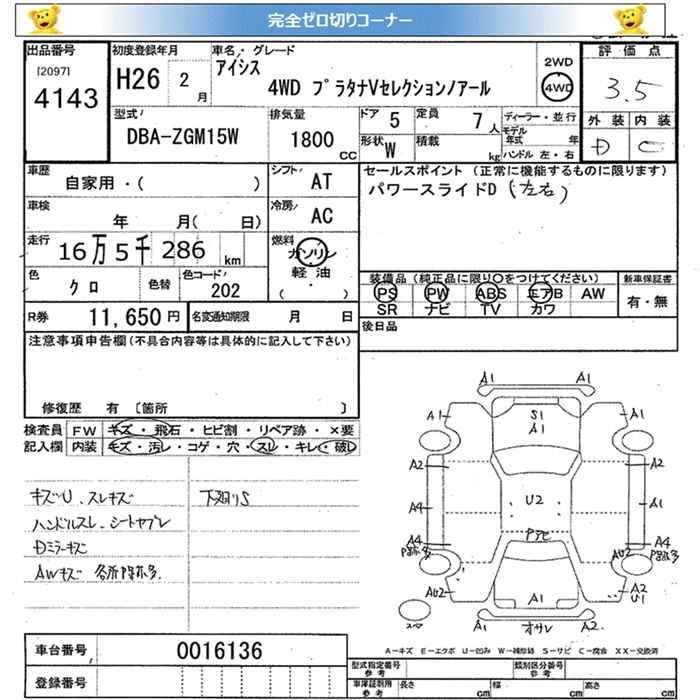 完全ゼロ切りコーナー
出品番号
[2097]
4143
初度登録年月
H26 2 月
車名・グレード
アイシス
4WD プラタナVセレクションノアール
2WD
4WD
評価点
3.5
外装 内装
D C
型式
DBA-ZGM15W
排気量
1800 CC
ドア 5
定員 7 人
形状 W
積載 kg
ディーラー・並行
モデル年式 年
ハンドル 左・右
車歴
自家用・( )
シフト AT
車検
年 月( 日)
冷房 AC
走行
16万5千286 km
燃料
ガソリン
軽油
( ・ )
色
クロ
色替
色コード
202
セールスポイント (正常に機能するものに限ります)
パワースライドD (左右)
装備品 (純正品に限り○をつけてください)
PS PW ABS エアB AW
SR ナビ TV カワ
新車保証書
有・無
R券 11,650 円
名変通知期限 月 日
後日品
注意事項申告欄(不具合内容等は具体的に記入して下さい)
修復歴 有 [箇所 ]
検査員 FW キズ・飛石・ヒビ割・リペア跡・×要
記入欄 内装 キズ・汚レ・コゲ・穴・スレ・キレ・破レ
キズU、スレキズ
下廻りS
ハンドルスレ、シートヤブレ
Dミラーキズ
AWキズ 各所PR多
A1 A1
A1 S1 A1
A1
A2 A2
U2
A4 A1
A4 A4
AU2
AU2 A1 A2
U1
A1 オサレ A2
A-キズ E-エクボ U-凹み W-補修跡 S-サビ C-腐食 XX-交換済
車台番号 0016136
登録番号
型式指定番号 参考
類別区分番号 参考
車庫証明用 参考 長さ cm 幅 cm 高さ cm